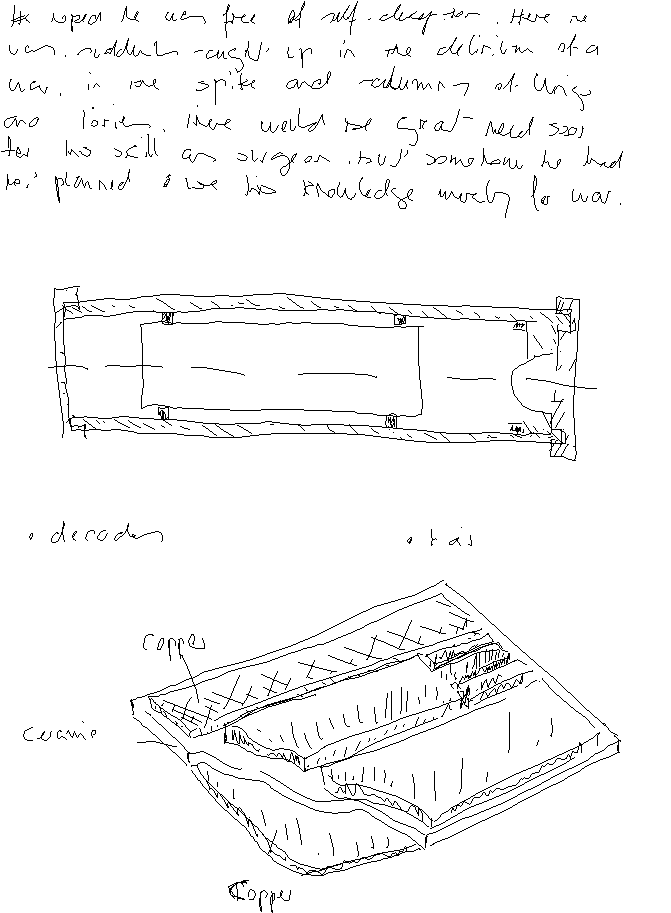 He hoped he was free of self-deception. Here he
was, suddenly caught up in the delirium of a
war, in the spite and calumny of Whigs
and Tories. There would be great need soon
for his skill as surgeon, but somehow he had
not planned to use his knowledge merely for war.
• decoder
• has
Copper
Ceramic
Copper